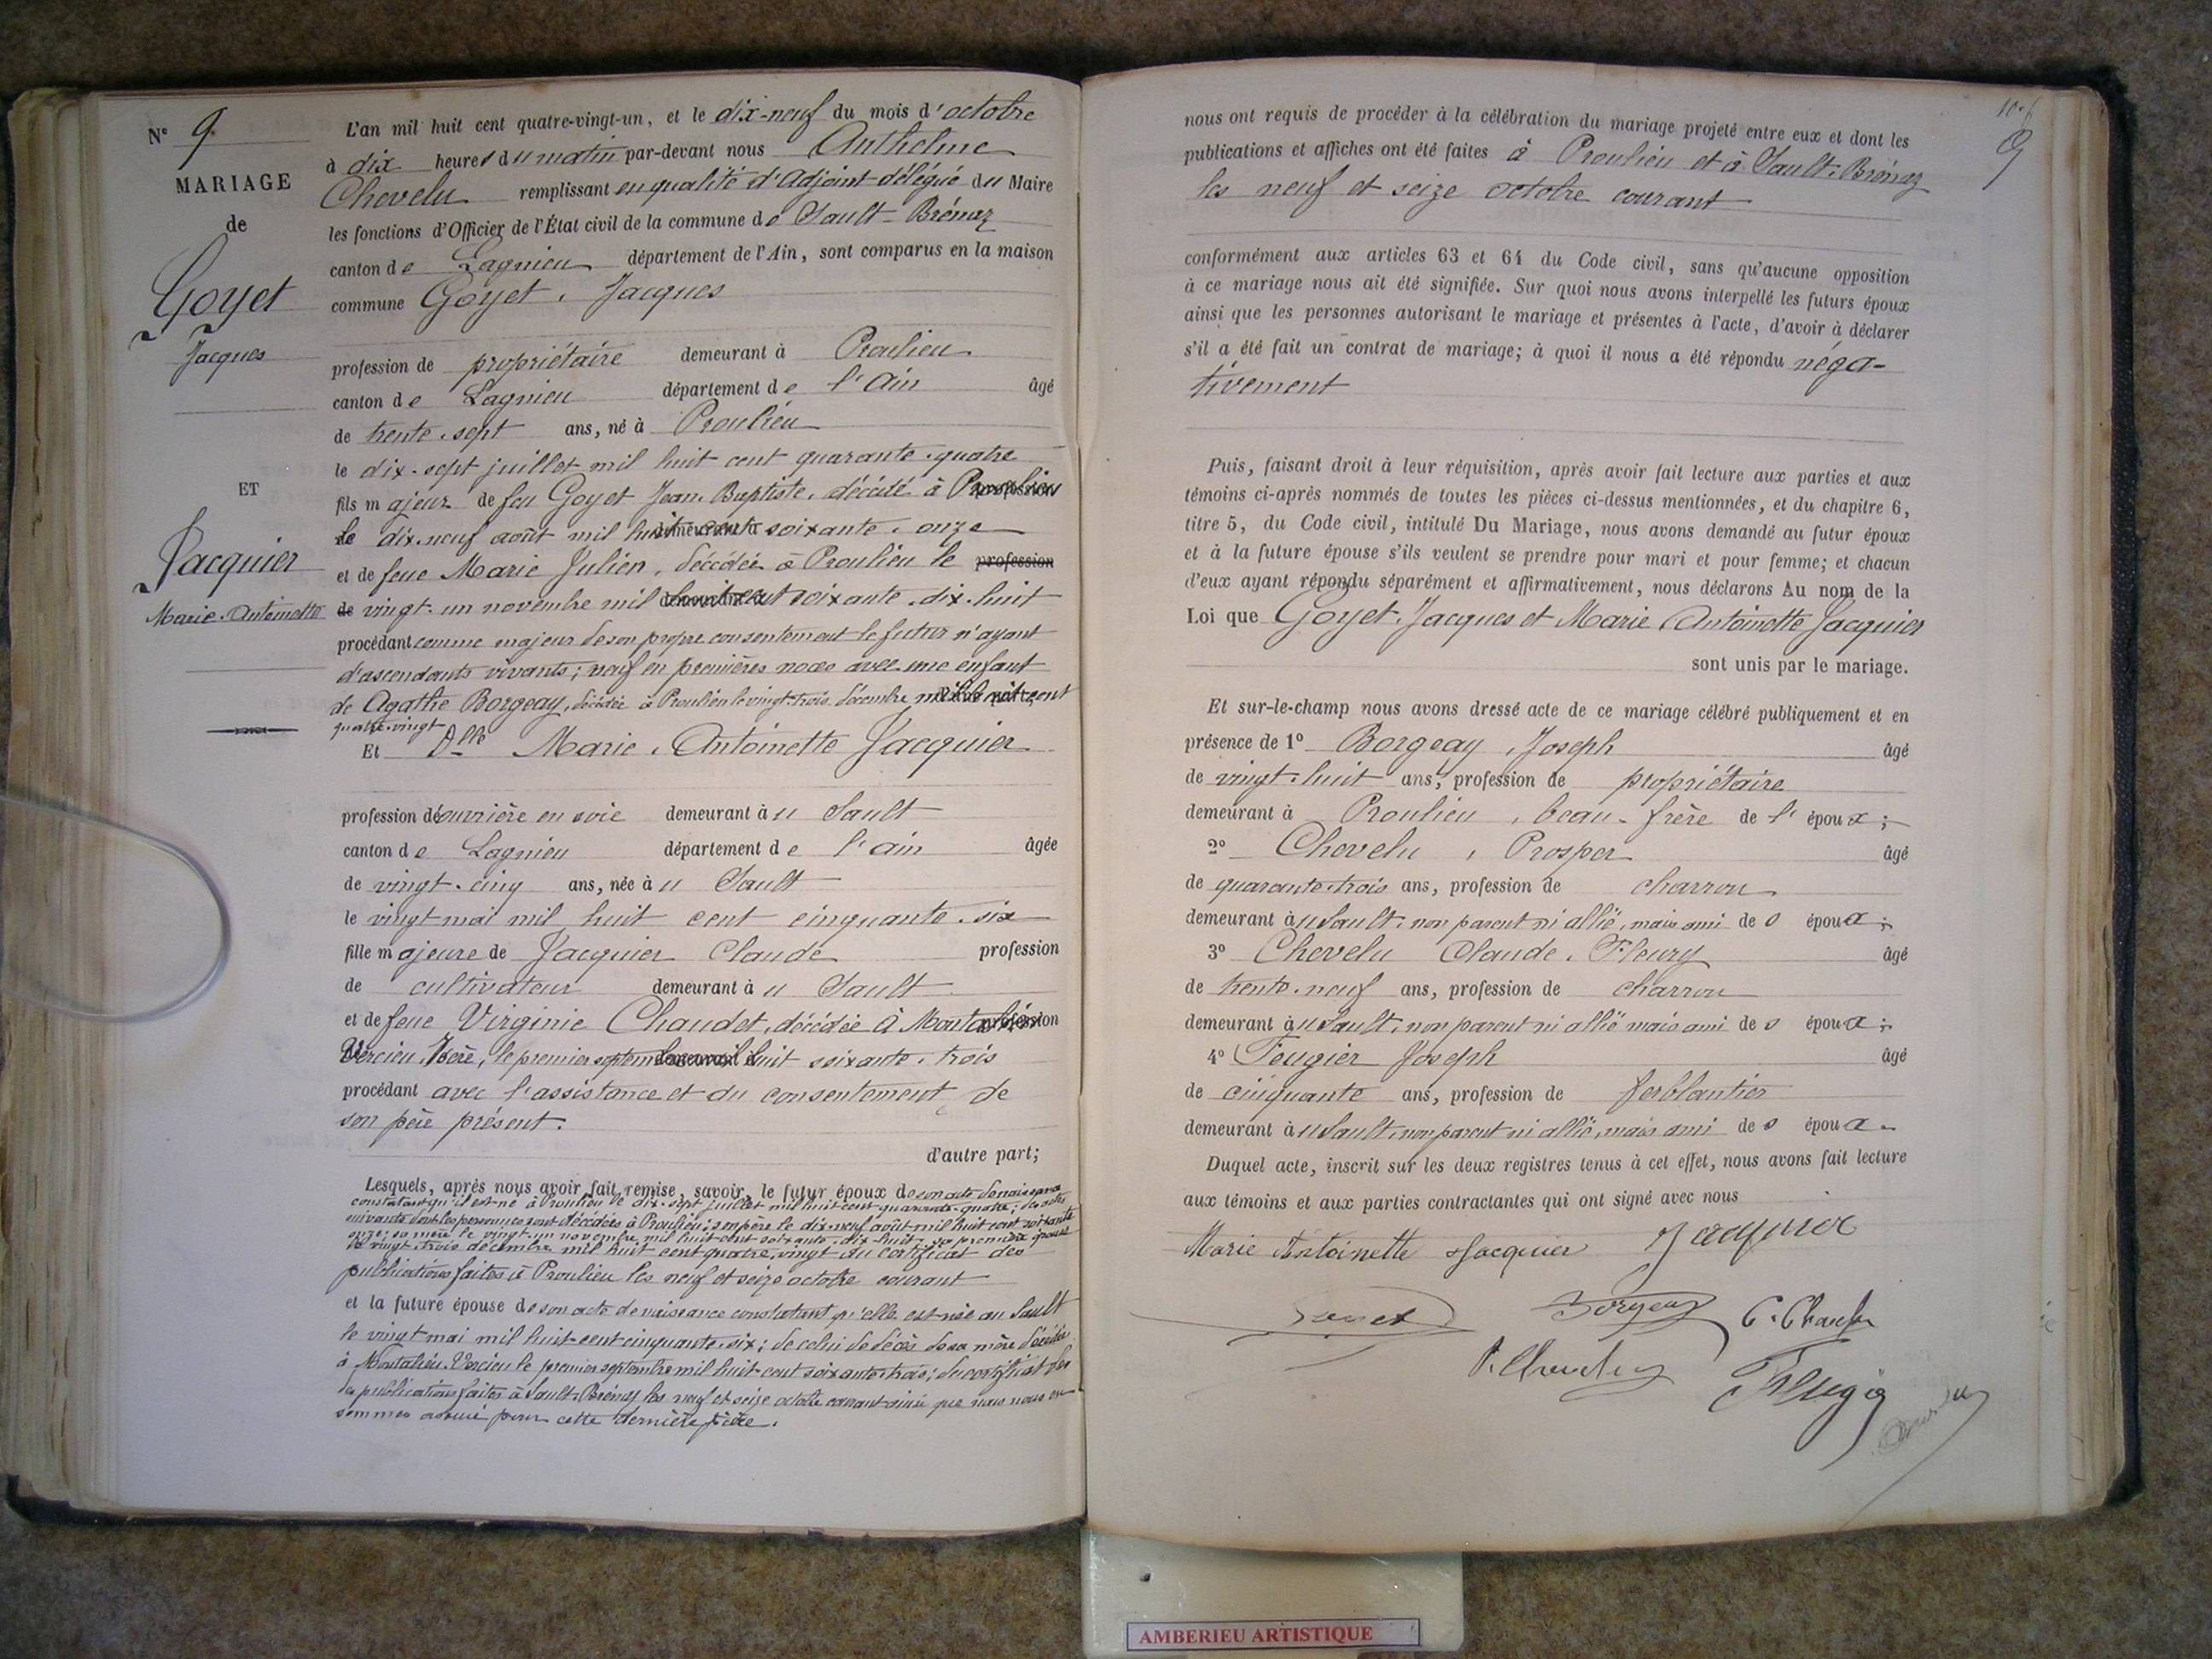 N° 9
MARIAGE
de
Goyet
Jacques
ET
Jacquier
Marie-Antoinette
L'an mil huit cent quatre-vingt-un, et le dix-neuf du mois d'octobre
à dix heures du matin par-devant nous Anthelme
Chevelu remplissant en qualité d'Adjoint délégué du Maire
les fonctions d'Officier de l'État civil de la commune de Sault-Brénaz
canton de Lagnieu département de l'Ain, sont comparus en la maison
commune Goyet, Jacques
profession de propriétaire demeurant à Proulieu
canton de Lagnieu département de l'Ain âgé
de trente-sept ans, né à Proulieu
le dix-sept juillet mil huit cent quarante-quatre
fils majeur de feu Goyet Jean-Baptiste, décédé à Proulieu
le dix-neuf août mil huit cent soixante-onze
et de feue Marie Julien, décédée à Proulieu le profession
de vingt-un novembre mil huit cent soixante-dix-huit
procédant comme majeur de son propre consentement le futur n'ayant
d'ascendants vivants; veuf en premières noces avec une enfant
de Agathe Borgeay, décédée à Proulieu le vingt-trois décembre mil huit cent
quatre-vingt
Et Dlle Marie-Antoinette Jacquier
profession d'ouvrière en soie demeurant au Sault
canton de Lagnieu département de l'ain âgée
de vingt-cinq ans, née au Sault
le vingt mai mil huit cent cinquante-six
fille majeure de Jacquier Claude profession
de cultivateur demeurant au Sault
et de feue Virginie Chaudet, décédée à Montalieu
Vercieu, Isère, le premier septembre mil huit soixante-trois
procédant avec l'assistance et du consentement de
son père présent.
d'autre part;
Lesquels, après nous avoir fait remise, savoir, le futur époux de son acte de naissance
constatant qu'il est né à Proulieu le dix-sept juillet mil huit cent quarante-quatre; des actes
suivants dont les personnes sont décédées à Proulieu; son père le dix-neuf août mil huit cent soixante
onze; sa mère le vingt-un novembre mil huit cent soixante-dix-huit; sa première épouse
le vingt-trois décembre mil huit cent quatre-vingt du certificat des
publications faites à Proulieu les neuf et seize octobre courant
et la future épouse de son acte de naissance constatant qu'elle est née au Sault
le vingt mai mil huit-cent cinquante-six; de celui de décès de sa mère décédée
à Montalieu-Vercieu le premier septembre mil huit-cent soixante-trois; du certificat des
publications faites à Sault-Brénaz les neuf et seize octobre courant ainsi que nous nous en
sommes assuré pour cette dernière pièce.
9
nous ont requis de procéder à la célébration du mariage projeté entre eux et dont les
publications et affiches ont été faites à Proulieu et à Sault-Brénaz
les neuf et seize octobre courant
conformément aux articles 63 et 64 du Code civil, sans qu'aucune opposition
à ce mariage nous ait été signifiée. Sur quoi nous avons interpellé les futurs époux
ainsi que les personnes autorisant le mariage et présentes à l'acte, d'avoir à déclarer
s'il a été fait un contrat de mariage; à quoi il nous a été répondu néga-
tivement
Puis, faisant droit à leur réquisition, après avoir fait lecture aux parties et aux
témoins ci-après nommés de toutes les pièces ci-dessus mentionnées, et du chapitre 6,
titre 5, du Code civil, intitulé Du Mariage, nous avons demandé au futur époux
et à la future épouse s'ils veulent se prendre pour mari et pour femme; et chacun
d'eux ayant répondu séparément et affirmativement, nous déclarons Au nom de la
Loi que Goyet, Jacques et Marie Antoinette Jacquier
sont unis par le mariage.
Et sur-le-champ nous avons dressé acte de ce mariage célébré publiquement et en
présence de 1° Borgeay, Joseph âgé
de vingt-huit ans, profession de propriétaire
demeurant à Proulieu, beau-frère de l'époux;
2° Chevelu, Prosper âgé
de quarante-trois ans, profession de charron
demeurant au Sault, non parent ni allié, mais ami des époux;
3° Chevelu Claude-Fleury âgé
de trente-neuf ans, profession de charron
demeurant au Sault, non parent ni allié mais ami des époux;
4° Feugier Joseph âgé
de cinquante ans, profession de ferblantier
demeurant au Sault, non parent ni allié, mais ami des époux.
Duquel acte, inscrit sur les deux registres tenus à cet effet, nous avons fait lecture
aux témoins et aux parties contractantes qui ont signé avec nous
Marie Antoinette Jacquier Jacquier
Borgeay
AMBERIEU ARTISTIQUE